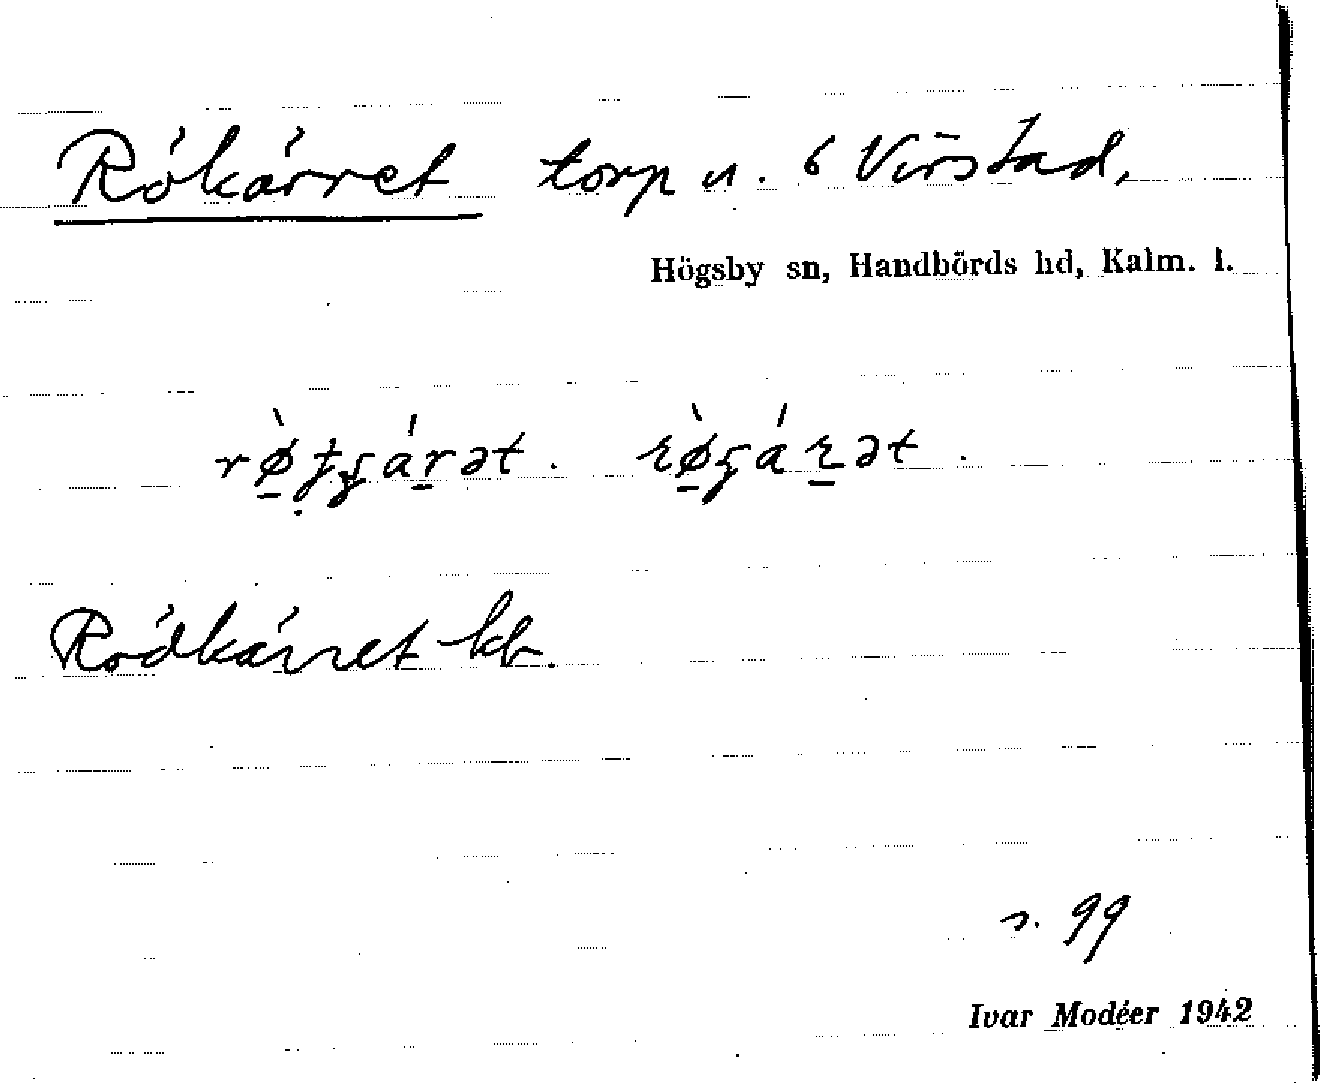 Rökärret torp u. 6 Virstad,
Högsby sn, Handbörds hd, Kalm. l.
Rödkärret kb.
s. 99
Ivar Modéer 1942